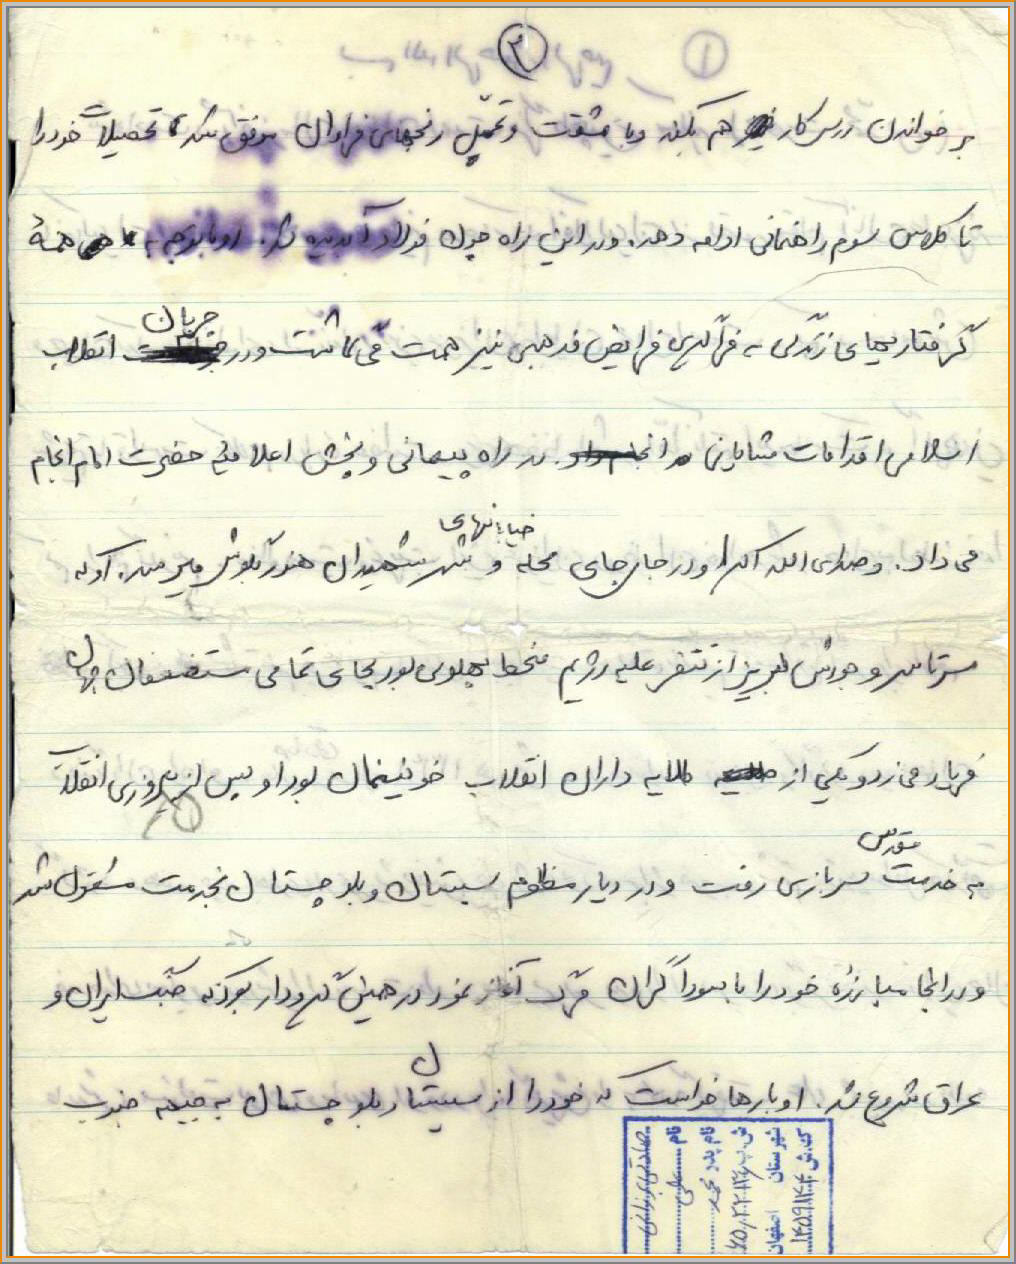 ۲
بر خواندن درس کار نیز هم بکند و با مشقت و تحمّل رنجهای فراوان موفق شد تا تحصیلات خود را
تا کلاس سوم راهنمائی ادامه دهد. و در این راه چون فولاد آبدیده شد. او با توجه به همهٔ
گرفتاریهای زندگی به فراگیری فرایض مذهبی نیز همت می گماشت و در جریان انقلاب
اسلامی اقدامات شایانی در راه پیمائی و پخش اعلامیه حضرت امام انجام
می داد. و صدای الله اکبر او در جای جای محله و خیابانهای شهر شهیدان هنوز بگوش میرسد. او که
سرتاسر وجودش لبریز از تنفر علیه رژیم منحط پهلوی بود بجای تمامی مستضعفان جهان
فریاد می زد و یکی از طلایه داران انقلاب خونینمان بود او پس از پیروزی انقلاب
به خدمت مقدس سربازی رفت و در دیار مظلوم سیستان و بلوچستان بخدمت مشغول شد
و در آنجا مبارزهٔ خود را با سوداگران مرگ آغاز نمود در همین گیرودار بود که جنگ ایران و
عراق شروع شد. او بارها خواست که خود را از سیستان و بلوچستان به جبهه جنوب
ک.ش ۱۴۵۹۱۴۴
شهرستان اصفهان
ش.پ
نام پدر محمد
نام علی